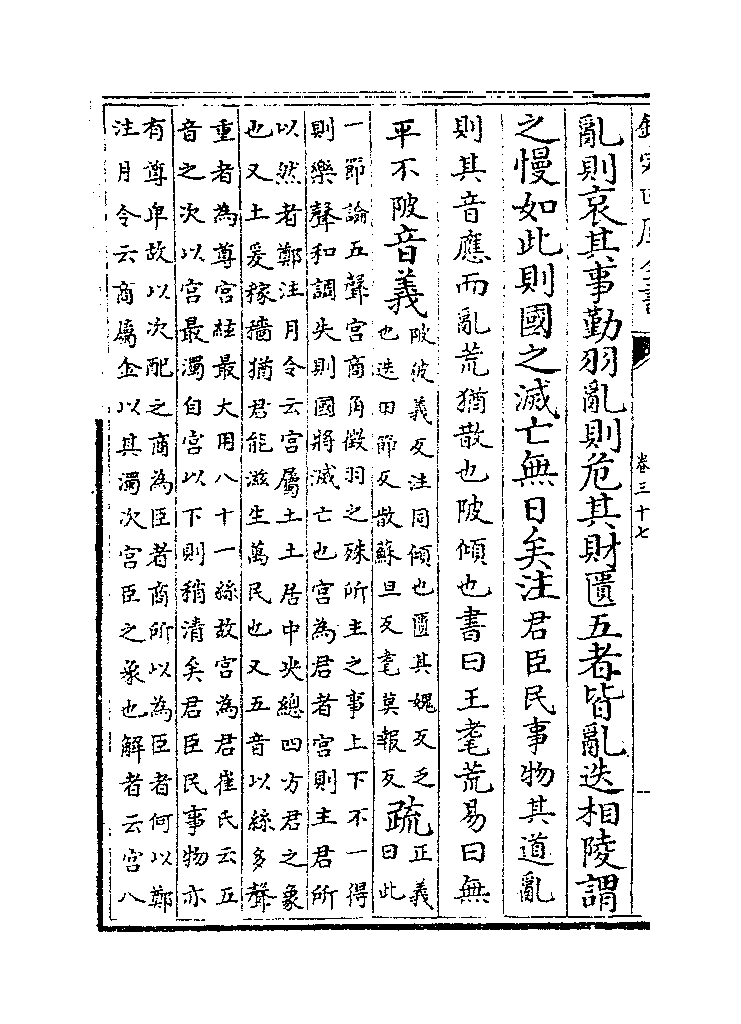 欽定四庫全書
卷三十七
亂則哀其事勤羽亂則危其財匱五者皆亂迭相陵謂
之慢如此則國之滅亡無日矣注君臣民事物其道亂
則其音應而亂荒猶散也陂傾也書曰王耄荒易曰無
平不陂音義
陂彼義反注同傾也匱其媿反乏
也迭田節反散蘇旦反耄莫報反
疏
正義
曰此
一節論五聲宮商角徵羽之殊所主之事上下不一得
則樂聲和調失則國將滅亡也宮為君者宮則主君所
以然者鄭注月令云宮屬土土居中央總四方君之象
也又土爰稼穡猶君能滋生萬民也又五音以絲多聲
重者為尊宮絃最大用八十一絲故宮為君崔氏云五
音之次以宮最濁自宮以下則稍清矣君臣民事物亦
有尊卑故以次配之商為臣者商所以為臣者何以鄭
注月令云商屬金以其濁次宮臣之象也解者云宮八